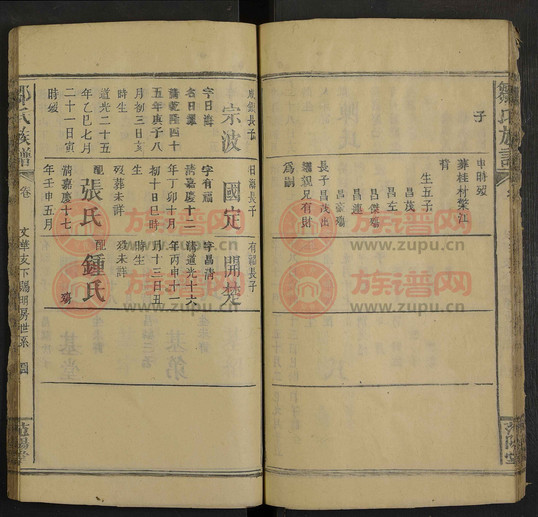 鄒氏族譜
子
申時歿
葬桂材黎江
背
生五子
昌茂
昌傑殤
昌立
昌選
昌澎殤
長子昌茂出
繼親兄有財
為嗣
范陽堂
東鎮長子
宗波
字日海
名日輝
清乾隆四十
五年庚子八
月初三日亥
時生
道光二十五
年乙巳七月
二十一日寅
時歿
日海長子
國定
字有福
清嘉慶十二
年丁卯十月
初十日巳時
生
歿葬未詳
配
張氏
清嘉慶十七
年壬申五月
有福長子
開楚
字昌清
清道光十六
年丙申十一
月十三日丑
時生
歿未詳
配
鍾氏
鄒氏族譜
卷
范陽堂
族譜网
www.zupu.cn
族譜网
www.zupu.cn